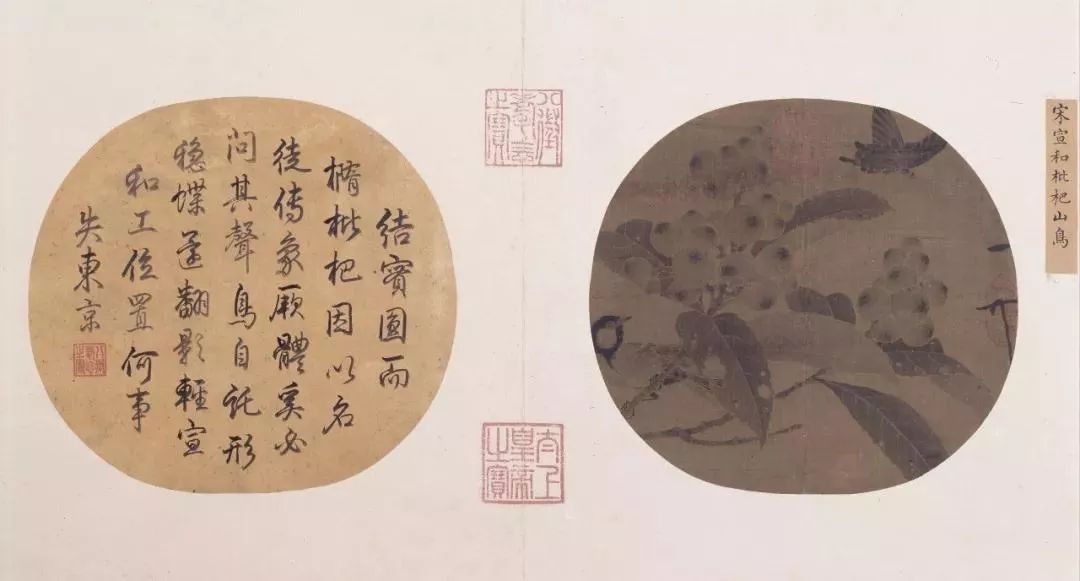 宋宣和枇杷山鳥
八徵
耄念
之寶
太上
皇帝
之寶
結實圓而
橢枇杷因以名
徒傳象厥體奚必
問其聲鳥自託形
穩蝶還翻影輕宣
和工位置何事
失東京